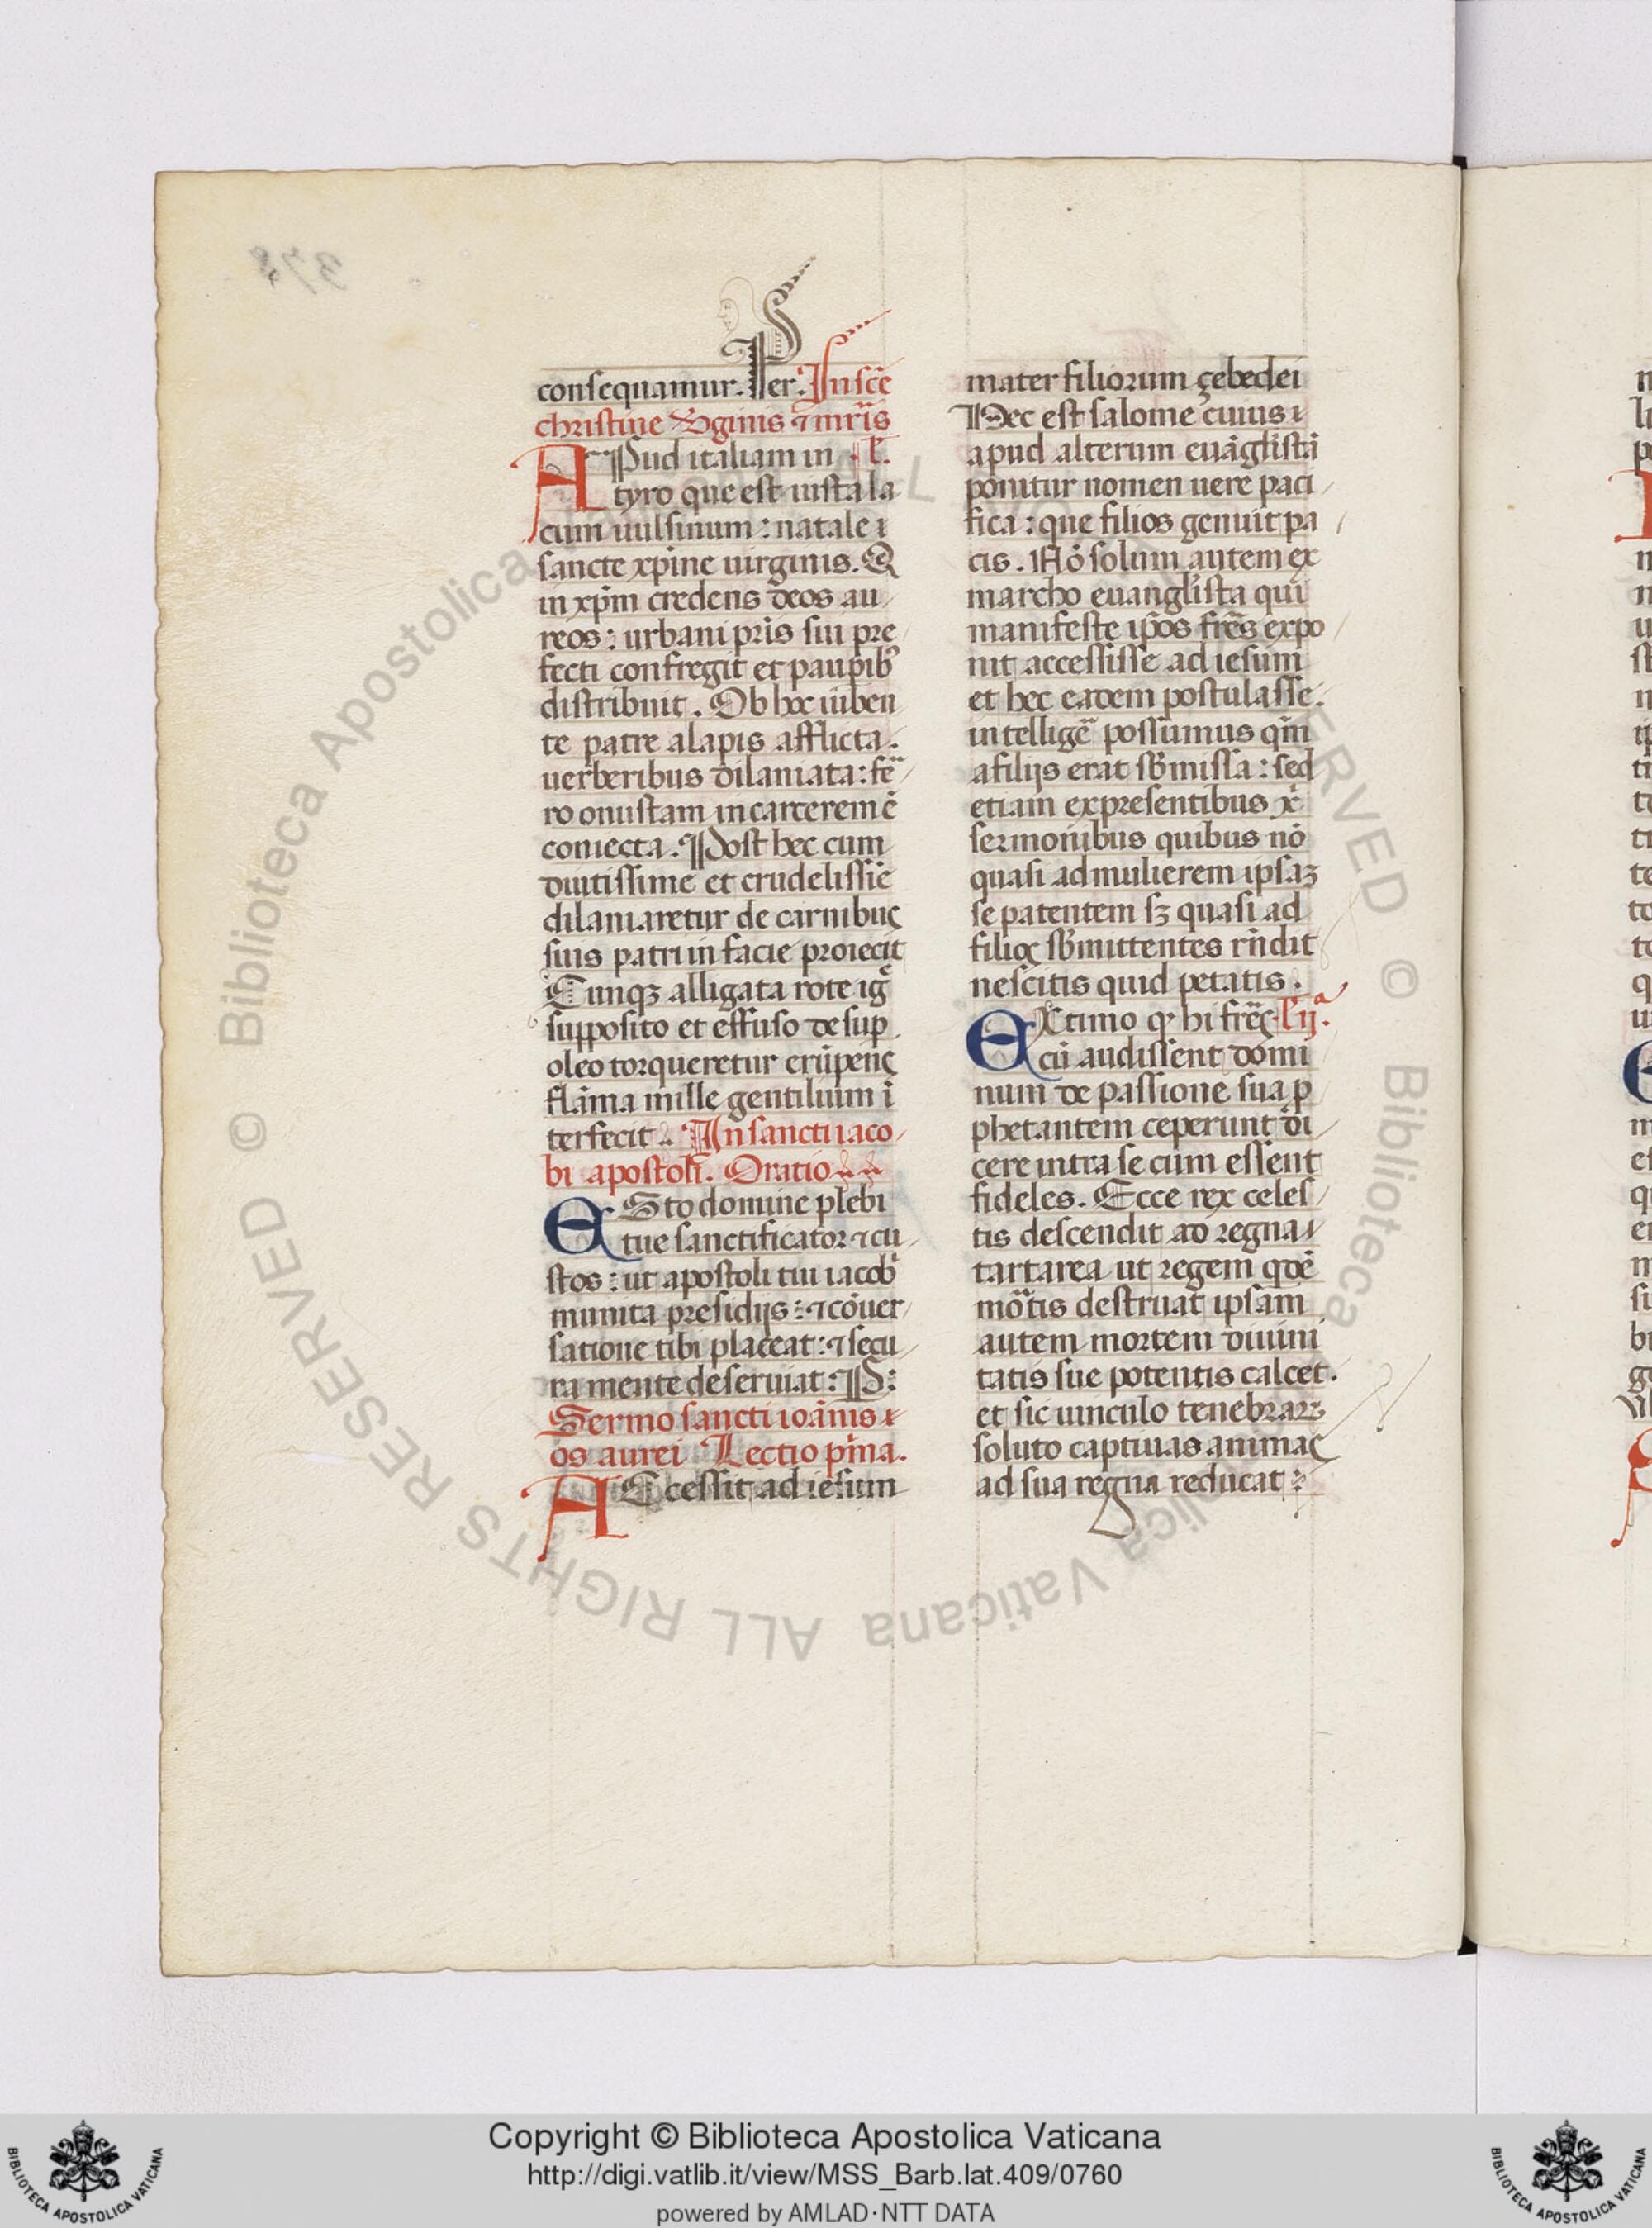 consequamur. Per. In scē
christine v̄ginis ⁊ mr̄is
APud italiam in . l̄.
tyro que est iusta la
cum uulsinum : natale
sancte xp̄ine uirginis. Q
in xp̄m credens deos au
reos : urbani pr̄is sui pre
fecti confregit et paupib⁹
distribuit. Ob hoc iuben
te patre alapis afflicta.
uerberibus dilaniata : fe
ro onustam in carcerem ē
coniecta. Post hec cum
diutissime et crudelissīe
dilaniaretur de carnibus
suis patri in facie proiecit
Cunqꝫ alligata rote ig
supposito et effuso desup
oleo torqueretur erūpens
flāma mille gentilium ī
terfecit. In sancti iaco
bi apostoli. Oratio
ESto domine plebi
tue sanctificator ⁊ cu
stos : ut apostoli tui iacob
munita presidijs : ⁊ cōuer
satione tibi placeat : ⁊ secu
ra mente deseruiat : P:
Sermo sancti ioānis
os aurei Lectio pīma.
ACcessit ad iesum
mater filiorum çebedei
Hec est salome cuius
apud alterum euāglistā
ponitur nomen uere paci
fica : que filios genuit pa
cis. Nō solum autem ex
marcho euanglista qui
manifeste ip̄os frēs expo
nit accessisse ad iesum
et hec eadem postulasse.
intellige possumus qm̄
a filijs erat sb̄missa : sed
etiam ex presentibus x̄
sermonibus quibus nō
quasi ad mulierem ipsaꝫ
se patentem sꝫ quasi ad
filios sb̄mittentes rn̄dit
nescitis quid petatis.
EXtimo ꝙ hi frēs. l ij.ᵃ
cū audissent domi
num de passione sua p
phetantem ceperunt di
cere intra se cum essent
fideles. Ecce rex celes
tis descendit ad regna
tartarea ut regem qdē
mo tis destruat ipsam
autem mortem diuini
tatis sue potentis calcet.
et sic uinculo tenebrarꝫ
soluto captiuas animas
ad sua regna reducat :
378
Copyright © Biblioteca Apostolica Vaticana
http://digi.vatlib.it/view/MSS_Barb.lat.409/0760
powered by AMLAD·NTT DATA
BIBLIOTECA APOSTOLICA VATICANA
BIBLIOTECA APOSTOLICA VATICANA
© Biblioteca Apostolica Vaticana ALL RIGHTS RESERVED